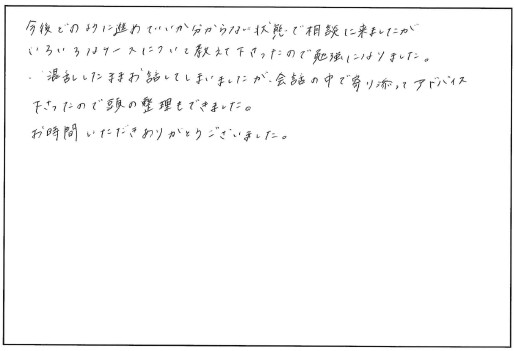 今後どのように進めていいか分からない状態で相談に来ましたが
いろいろなケースについて教えて下さったので勉強になりました。
混乱したままお話してしまいましたが、会話の中で寄り添ってアドバイス
下さったので頭の整理もできました。
お時間いただきありがとうございました。